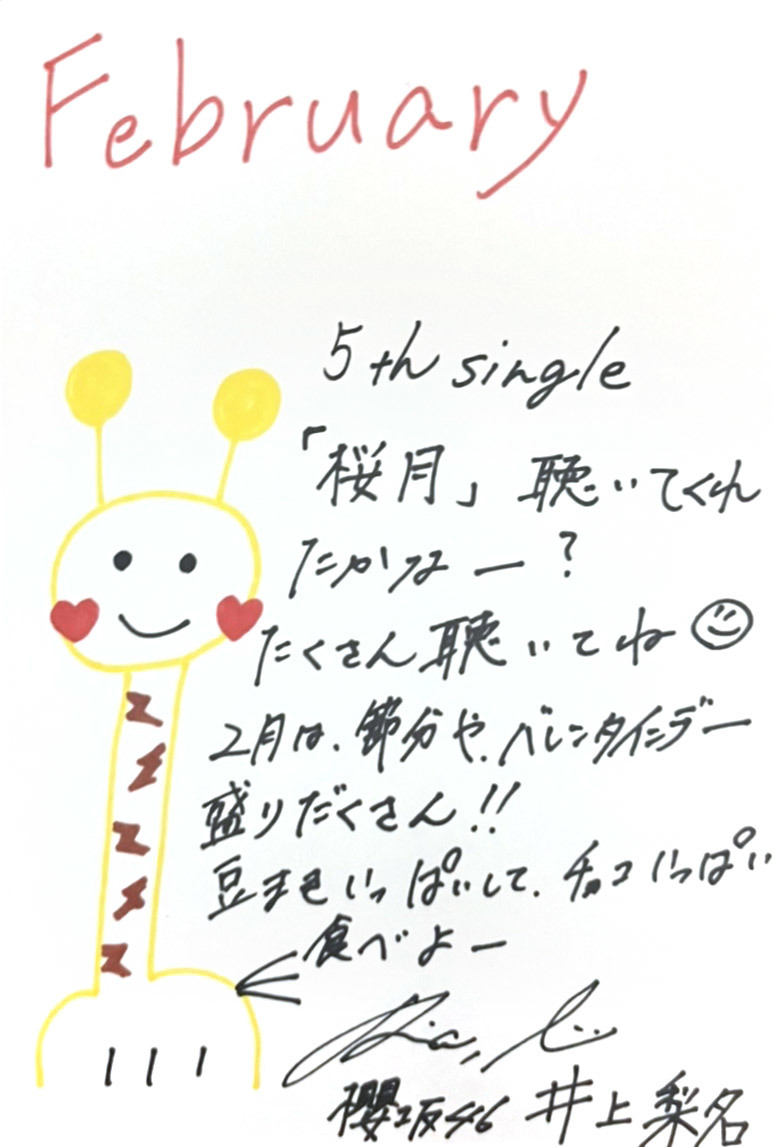 February
5th single
「桜月」聴いてくれ
たかなー？
たくさん聴いてね
2月は、節分や、バレンタインデー
盛りだくさん!!
豆まきいっぱいして、チョコいっぱい
食べよー
櫻坂46 井上梨名